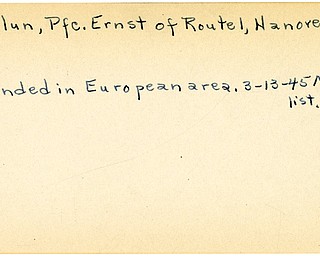 lun, Pfc. Ernst of Route1, Hanove
nded in European area. 3-13-45
list.